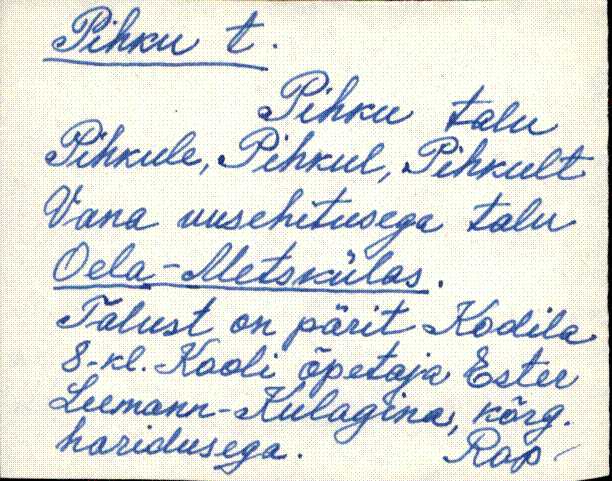 Pihku t.
Pihku talu
Pihkule, Pihkul, Pihkult
Vana uusehitusega talu
Oela-Metskülas.
Talust on pärit Kodila
8-kl. Kooli õpetaja Ester
Leemann-Kulagina, kõrg.
haridusega. Rap